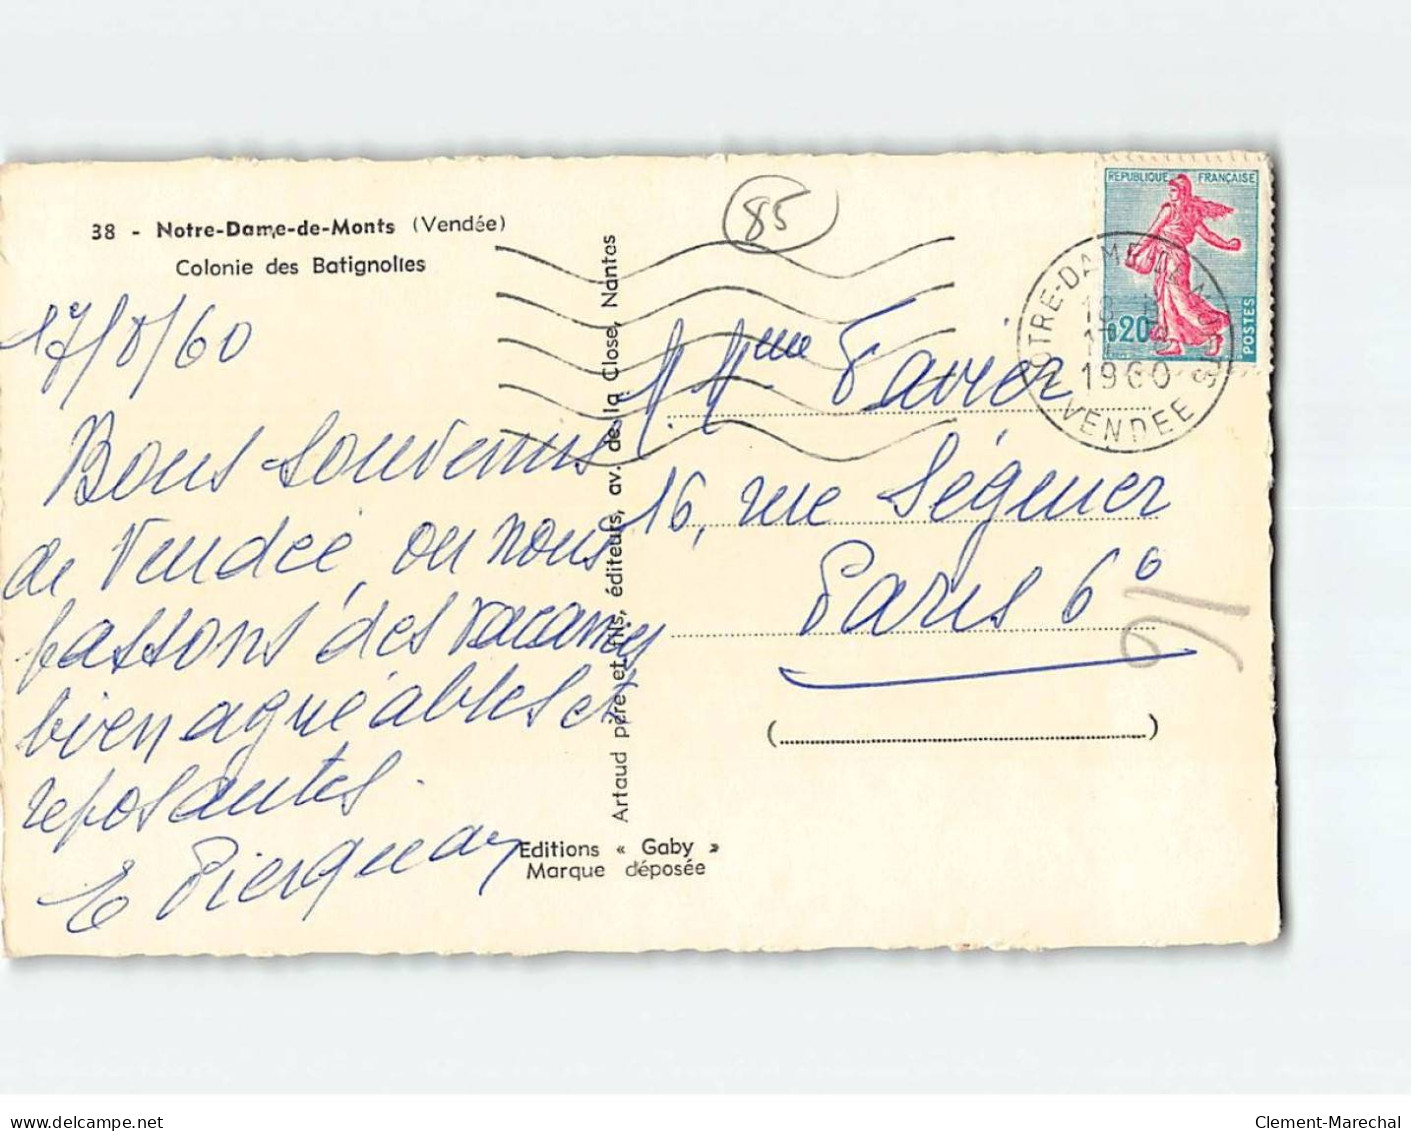 38 - Notre-Dame-de-Monts (Vendée)
Colonie des Batignolles
17/8/60
Bons souvenirs
de Vendée, ou nous
passons des vacances
bien agréables et
reposantes.
Artaud père et fils, éditeurs, av. de la Close, Nantes
Editions « Gaby »
Marque déposée
85
REPUBLIQUE FRANÇAISE
0,20
POSTES
NOTRE-DAME
1960
VENDEE
M. Mme Favier
16, rue Séguier
Paris 6e
91
Clement-Marechal